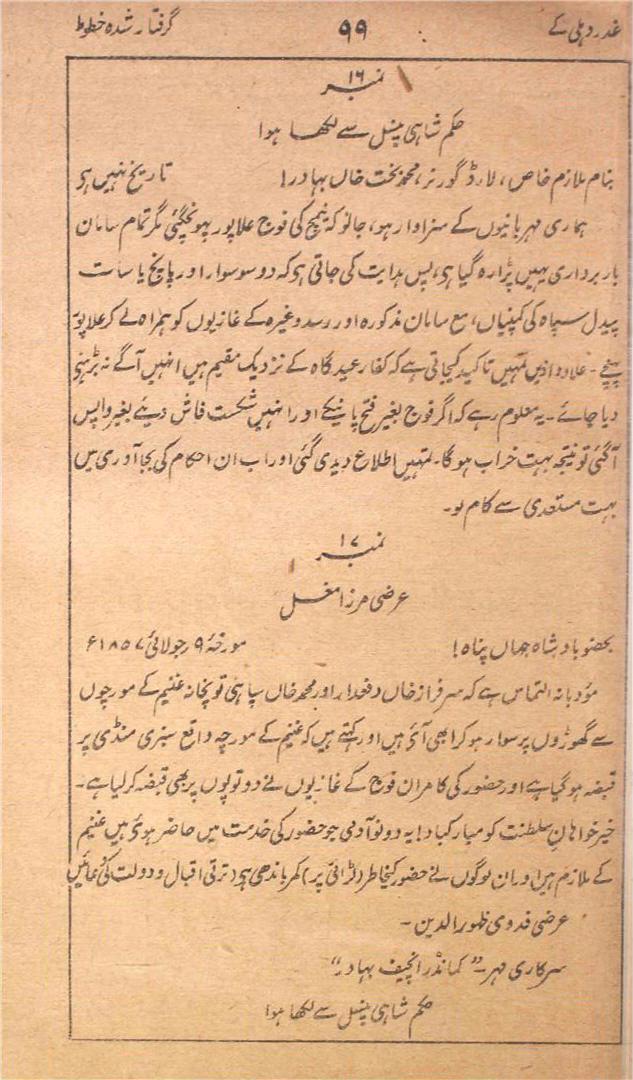 غدر دہلی کے ۹۹ گرفتار شدہ خطوط
نمبر ۱۶
حکم شاہی پنسل سے لکھا ہوا
بنام ملازم خاص، لارڈ گورنر، محمد بخت خاں بہادر! تاریخ نہیں ہی
ہماری مہربانیوں کے سزاوار ہو، جانو کہ نیمچ کی فوج علاپور پہونچگئی مگر تمام سامان
باربرداری یہیں پڑا رہ گیا ہی، پس ہدایت کی جاتی ہو کہ دو سو سوار اور پانچ یا سات
پیدل سپاہ کی کمپنیاں، مع سامان مذکورہ اور رسد وغیرہ کے غازیوں کو ہمراہ لے کر علاپور
پہنچے۔ علاوہ ازیں تمہیں تاکید کیجاتی ہے کہ کفار عیدگاہ کے نزدیک مقیم ہیں انہیں آگے نہ بڑہنے
دیا جائے۔ یہ معلوم رہے کہ اگر فوج بغیر فتح پائیکے اور انہیں شکست فاش دیئے بغیر واپس
آگئی تو نتیجہ بہت خراب ہوگا۔ تمہیں اطلاع دیدی گئی اور اب ان احکام کی بجا آوری میں
بہت مستعدی سے کام لو۔
نمبر ۱۷
عرضی مرزا مغل
بحضور بادشاہ جہاں پناہ! مورخہ ۹ جولائی ۱۸۵۷ء
مؤدبانہ التماس ہے کہ سرفراز خاں دفعدار اور محمد خاں سپاہی توپخانہ غنیم کے مورچوں
سے گھوڑوں پر سوار ہوکر ابھی آئے ہیں اور کہتے ہیں کہ غنیم کے مورچہ واقع سبزی منڈی پر
قبضہ ہوگیا ہے اور حضور کی کامران فوج کے غازیوں نے دو توپوں پر بھی قبضہ کرلیا ہے۔
خیر خواہان سلطنت کو مبارکباد! یہ دونو آدمی جو حضور کی خدمت میں حاضر ہوئے ہیں غنیم
کے ملازم ہیں اور ان لوگوں نے حضور کیخاطر (لڑائی پر) کمر باندھی ہی (ترقی اقبال و دولت کی دعائیں)
عرضی فدوی ظہور الدین۔
سرکاری مہر۔ "کمانڈر انچیف بہادر"
حکم شاہی پنسل سے لکھا ہوا